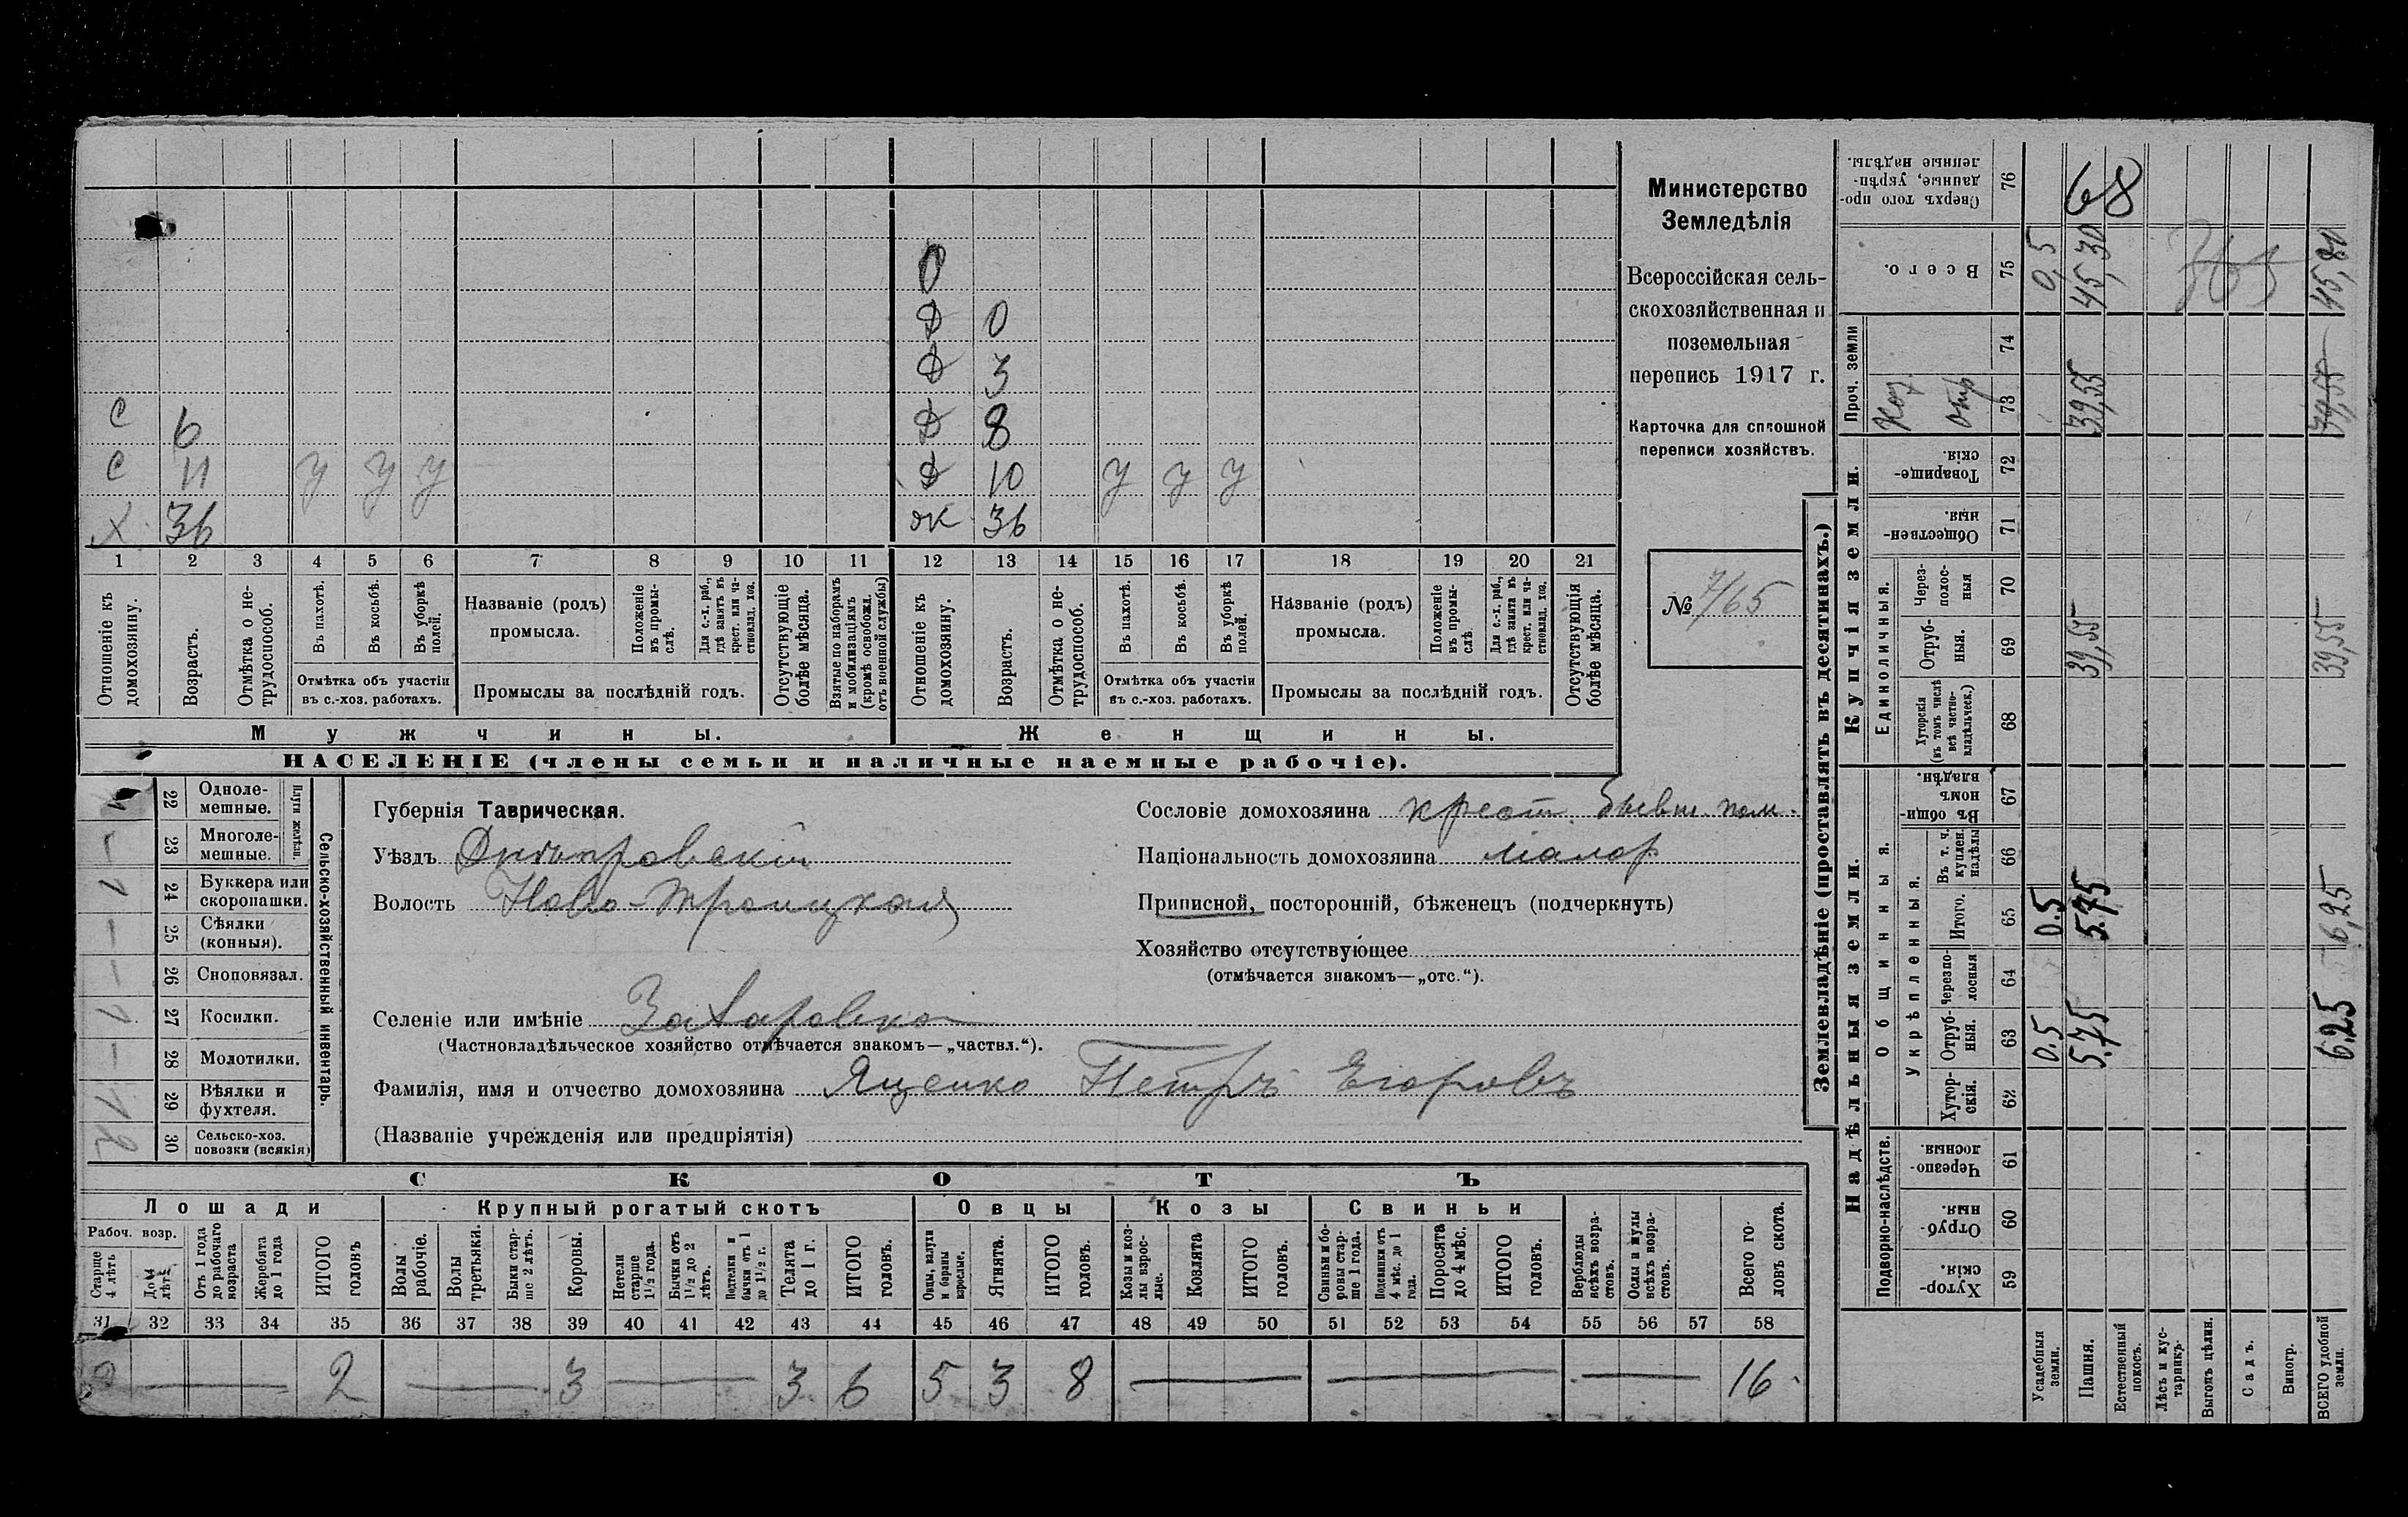 О
Д 0
Д 3
С 6 Д 8
С 11 У У У Д 10 У У У
Х 36 ж 36
1 2 3 4 5 6 7 8 9 10 11 12 13 14 15 16 17 18 19 20 21
Отношеніе къ домохозяину.
Возрастъ.
Отмѣтка о не-
трудоспособ.
Въ пахотѣ.
Въ косьбѣ.
Въ уборкѣ
полей.
Отмѣтка объ участіи
въ с.-хоз. работахъ.
Названіе (родъ)
промысла.
Положеніе
въ промы-
слѣ.
Для с.-х. раб.,
гдѣ занятъ въ
крест. или ча-
стновлад. хоз.
Промыслы за послѣдній годъ.
Отсутствующіе
болѣе мѣсяца.
Взятые по наборамъ
и мобилизаціямъ
(кромѣ освобожд.
отъ военной службы)
Отношеніе къ
домохозяину.
Возрастъ.
Отмѣтка о не-
трудоспособ.
Въ пахотѣ.
Въ косьбѣ.
Въ уборкѣ
полей.
Отмѣтка объ участіи
въ с.-хоз. работахъ.
Названіе (родъ)
промысла.
Положеніе
въ промы-
слѣ.
Для с.-х. раб.,
гдѣ занята въ
крест. или ча-
стновлад. хоз.
Промыслы за послѣдній годъ.
Отсутствующія
болѣе мѣсяца.
Мужчины.
Женщины.
НАСЕЛЕНІЕ (члены семьи и наличные наемные рабочіе).
Министерство
Земледѣлія
Всероссійская сель-
скохозяйственная и
поземельная
перепись 1917 г.
Карточка для сплошной
переписи хозяйствъ.
№ 7/65
1 22 Одноле-
мешные.
— 23 Многоле-
мешные.
Плуги желѣзн.
1 24 Буккера или
скоропашки.
— 25 Сѣялки
(конныя).
— 26 Сноповязал.
1 27 Косилки.
— 28 Молотилки.
1 29 Вѣялки и
фухтеля.
2 30 Сельско-хоз.
повозки (всякія)
Сельско-хозяйственный инвентарь.
Губернія Таврическая.
Уѣздъ Днѣпровскій
Волость Ново-Троицкая
Селеніе или имѣніе Захаровка
(Частновладѣльческое хозяйство отмѣчается знакомъ—„частвл.“).
Фамилія, имя и отчество домохозяина Яценко Петръ Егоровъ
(Названіе учрежденія или предпріятія)
Сословіе домохозяина крест. бывш. пом.
Національность домохозяина малор
Приписной, посторонній, бѣженецъ (подчеркнуть)
Хозяйство отсутствующее
(отмѣчается знакомъ—„отс.“).
СКОТЪ
Лошади Крупный рогатый скотъ Овцы Козы Свиньи
Рабоч. возр.
Старше
4 лѣтъ
До 4
лѣтъ
Отъ 1 года
до рабочаго
возраста
Жеребята
до 1 года
ИТОГО
головъ
Волы
рабочіе.
Волы
третьяки.
Быки стар-
ше 2 лѣтъ.
Коровы.
Нетели
старше
1½ года.
Бычки отъ
1½ до 2
лѣтъ.
Подтелки и
бычки отъ 1
до 1½ г.
Телята
до 1 г.
ИТОГО
головъ.
Овцы, валухи
и бараны
взрослые.
Ягнята.
ИТОГО
головъ.
Козы и коз-
лы взрос-
лые.
Козлята
ИТОГО
головъ.
Свиньи и бо-
ровы стар-
ше 1 года.
Подсвинки отъ
4 мѣс. до 1
года.
Поросята
до 4 мѣс.
ИТОГО
головъ.
Верблюды
всѣхъ возра-
стовъ.
Ослы и мулы
всѣхъ возра-
стовъ.
Всего го-
ловъ скота.
31 32 33 34 35 36 37 38 39 40 41 42 43 44 45 46 47 48 49 50 51 52 53 54 55 56 57 58
2 — 2 — 3 — 3 6 5 3 8 — — — 16
Землевладѣніе (проставлять въ десятинахъ.)
Надѣльныя земли.
Купчія земли.
Проч. земли
Подворно-наслѣдств.
Общинныя.
Укрѣпленныя.
Единоличныя.
Сверхъ того про-
данные, укрѣп-
ленные надѣлы. 76 68
Всего. 75 0,5 45,30 45,80
74
73 39,55 39,55
Товарище-
скія. 72
Обществен-
ныя. 71
Через-
полос-
ныя 70
Отруб-
ныя. 69 39,55 39,55
Хуторскія
(въ томъ числѣ
всѣ частно-
владѣльческ.) 68
Въ общи-
номъ
владѣн. 67
Въ т. ч.
куплен.
надѣлы 66
Итого. 65 0.5 5.75 6,25
Черезпо-
лосныя 64
Отруб-
ныя. 63 0.5 5.75 6.25
Хутор-
скія. 62
Черезпо-
лосныя 61
Отруб-
ныя. 60
Хутор-
скія. 59
Усадебныя
земли.
Пашня.
Естественный
покосъ.
Лѣсъ и кус-
тарникъ.
Выгонъ цѣлин.
Садъ.
Виногр.
ВСЕГО удобной
земли.